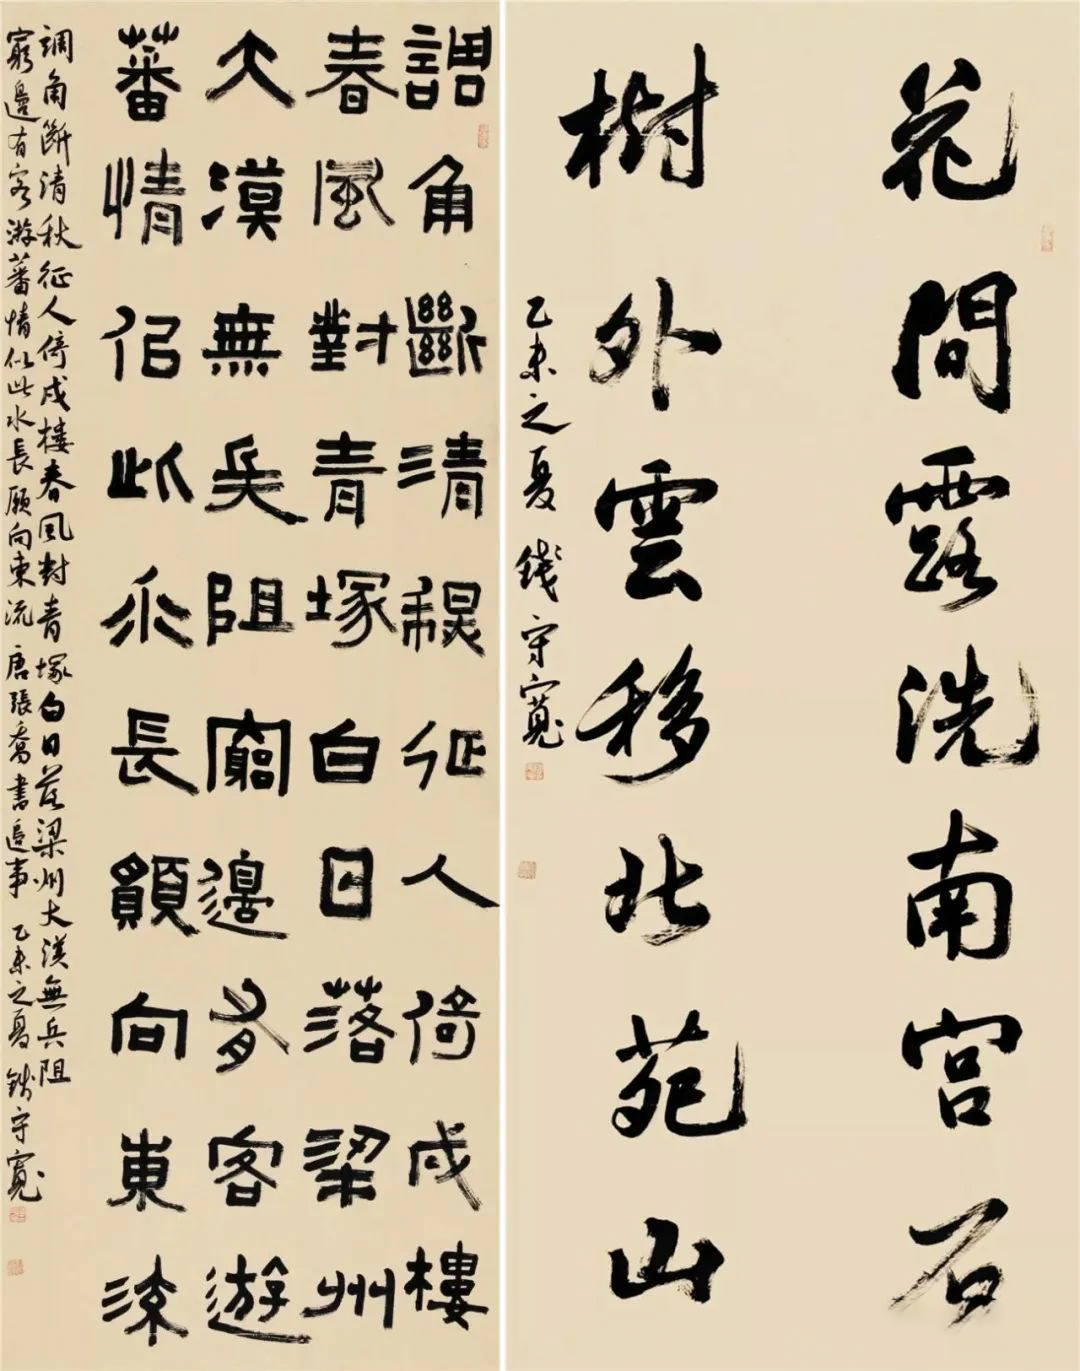 花間露洗南宫石
樹外雲移北苑山
乙未之夏 錢守寬
調角斷清穐征人倚戍樓
春風對青塚白日落梁州
大漠無兵阻窮邊有客遊
蕃情佀此水長願向東流
調角断清秋征人倚戍樓春風對青塚白日落梁州大漠無兵阻
窮邊有客游蕃情似此水長願向東流 唐張喬書邊事 乙未之夏 錢守寬